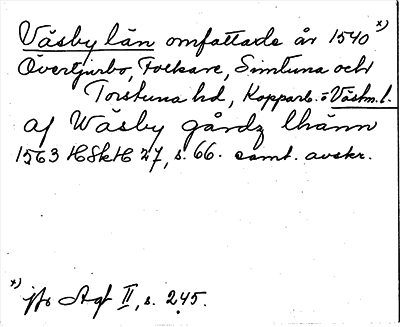 Väsby län omfattade år 1540 x)
Övertjurbo, Folkare, Simtuna och
Torstuna hd, Kopparb. = Västm. l.
af Wäsby gårdz lhänn
1563 HSkH 27, s. 66. samt. avskr.
x) jfr Agf II, s. 245.